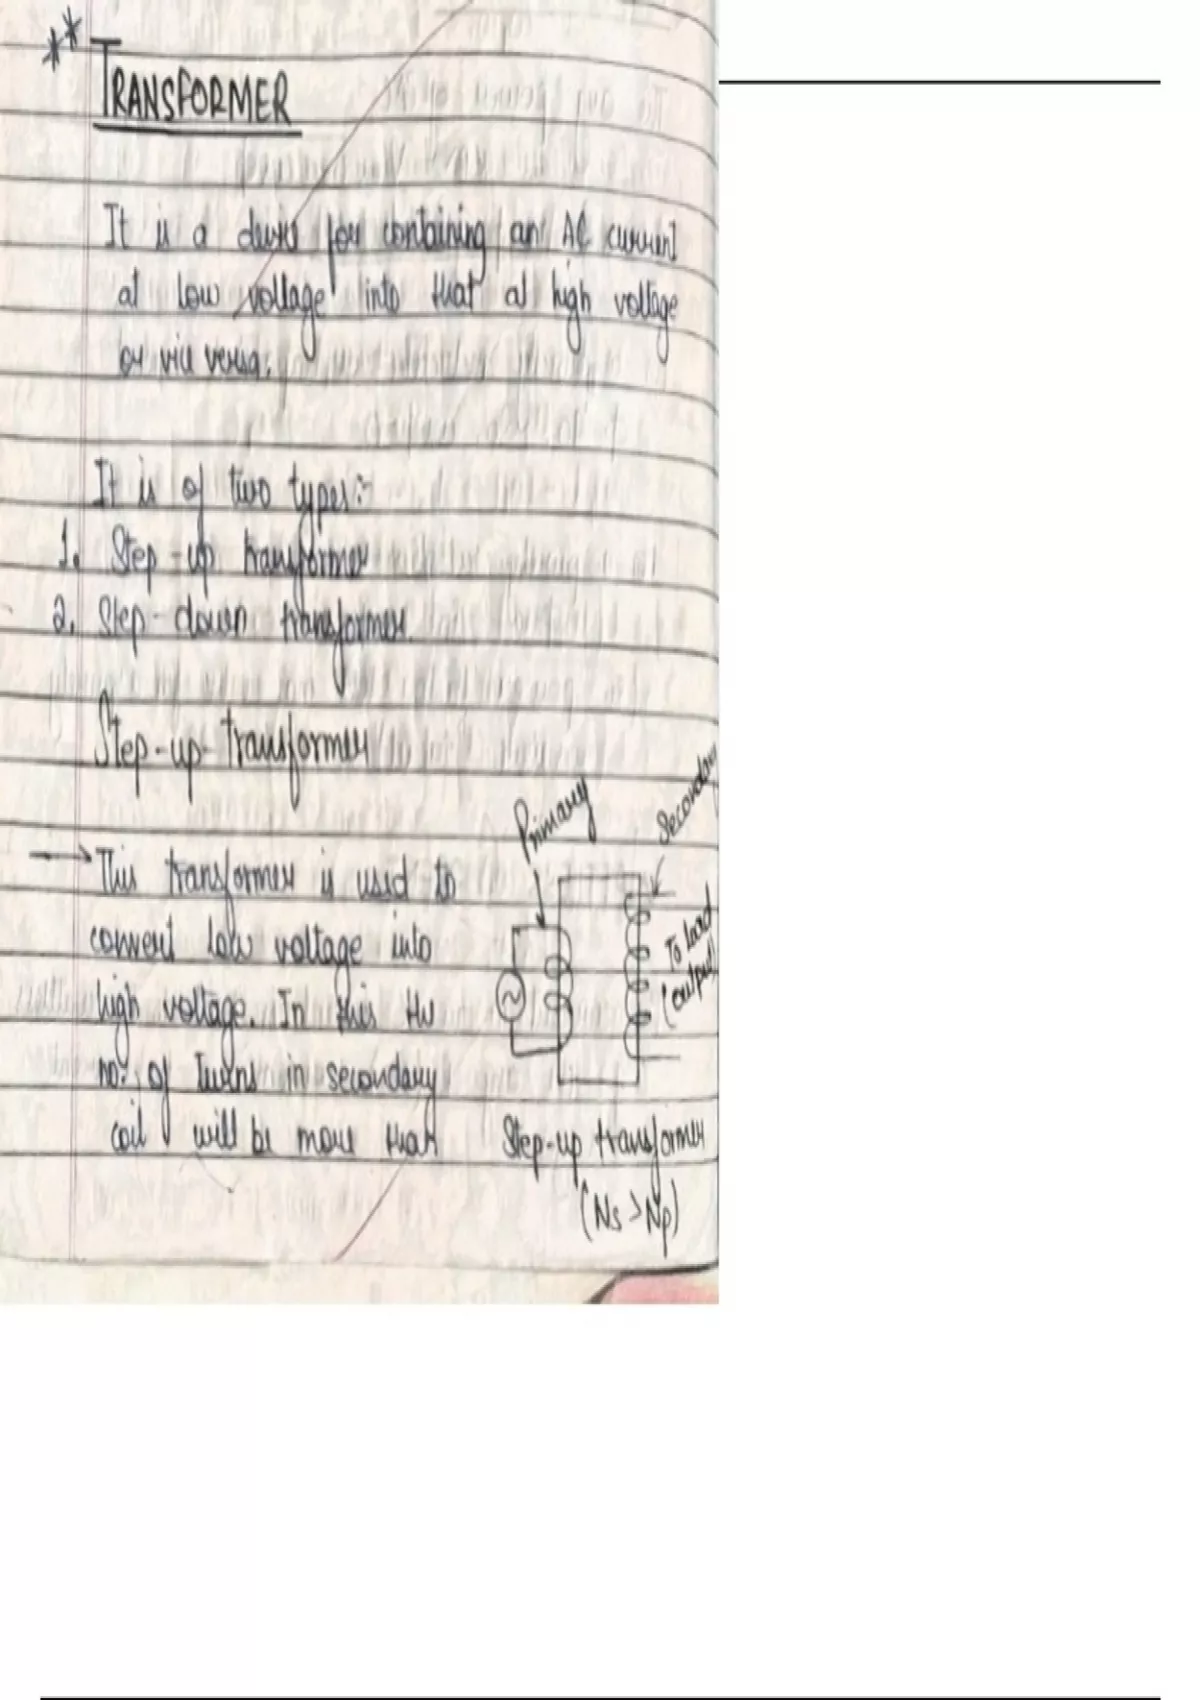 ** TRANSFORMER
It is a device for containing an AC current
at low voltage into that at high voltage
or vice versa.
It is of two types:-
1. Step-up transformer
2. Step-down transformer.
Step-up-transformer
→ This transformer is used to
convert low voltage into
high voltage. In this the
no. of turns in secondary
coil will be more that
Primary
Secondary
To load
(output)
Step-up transformer
(Ns > Np)